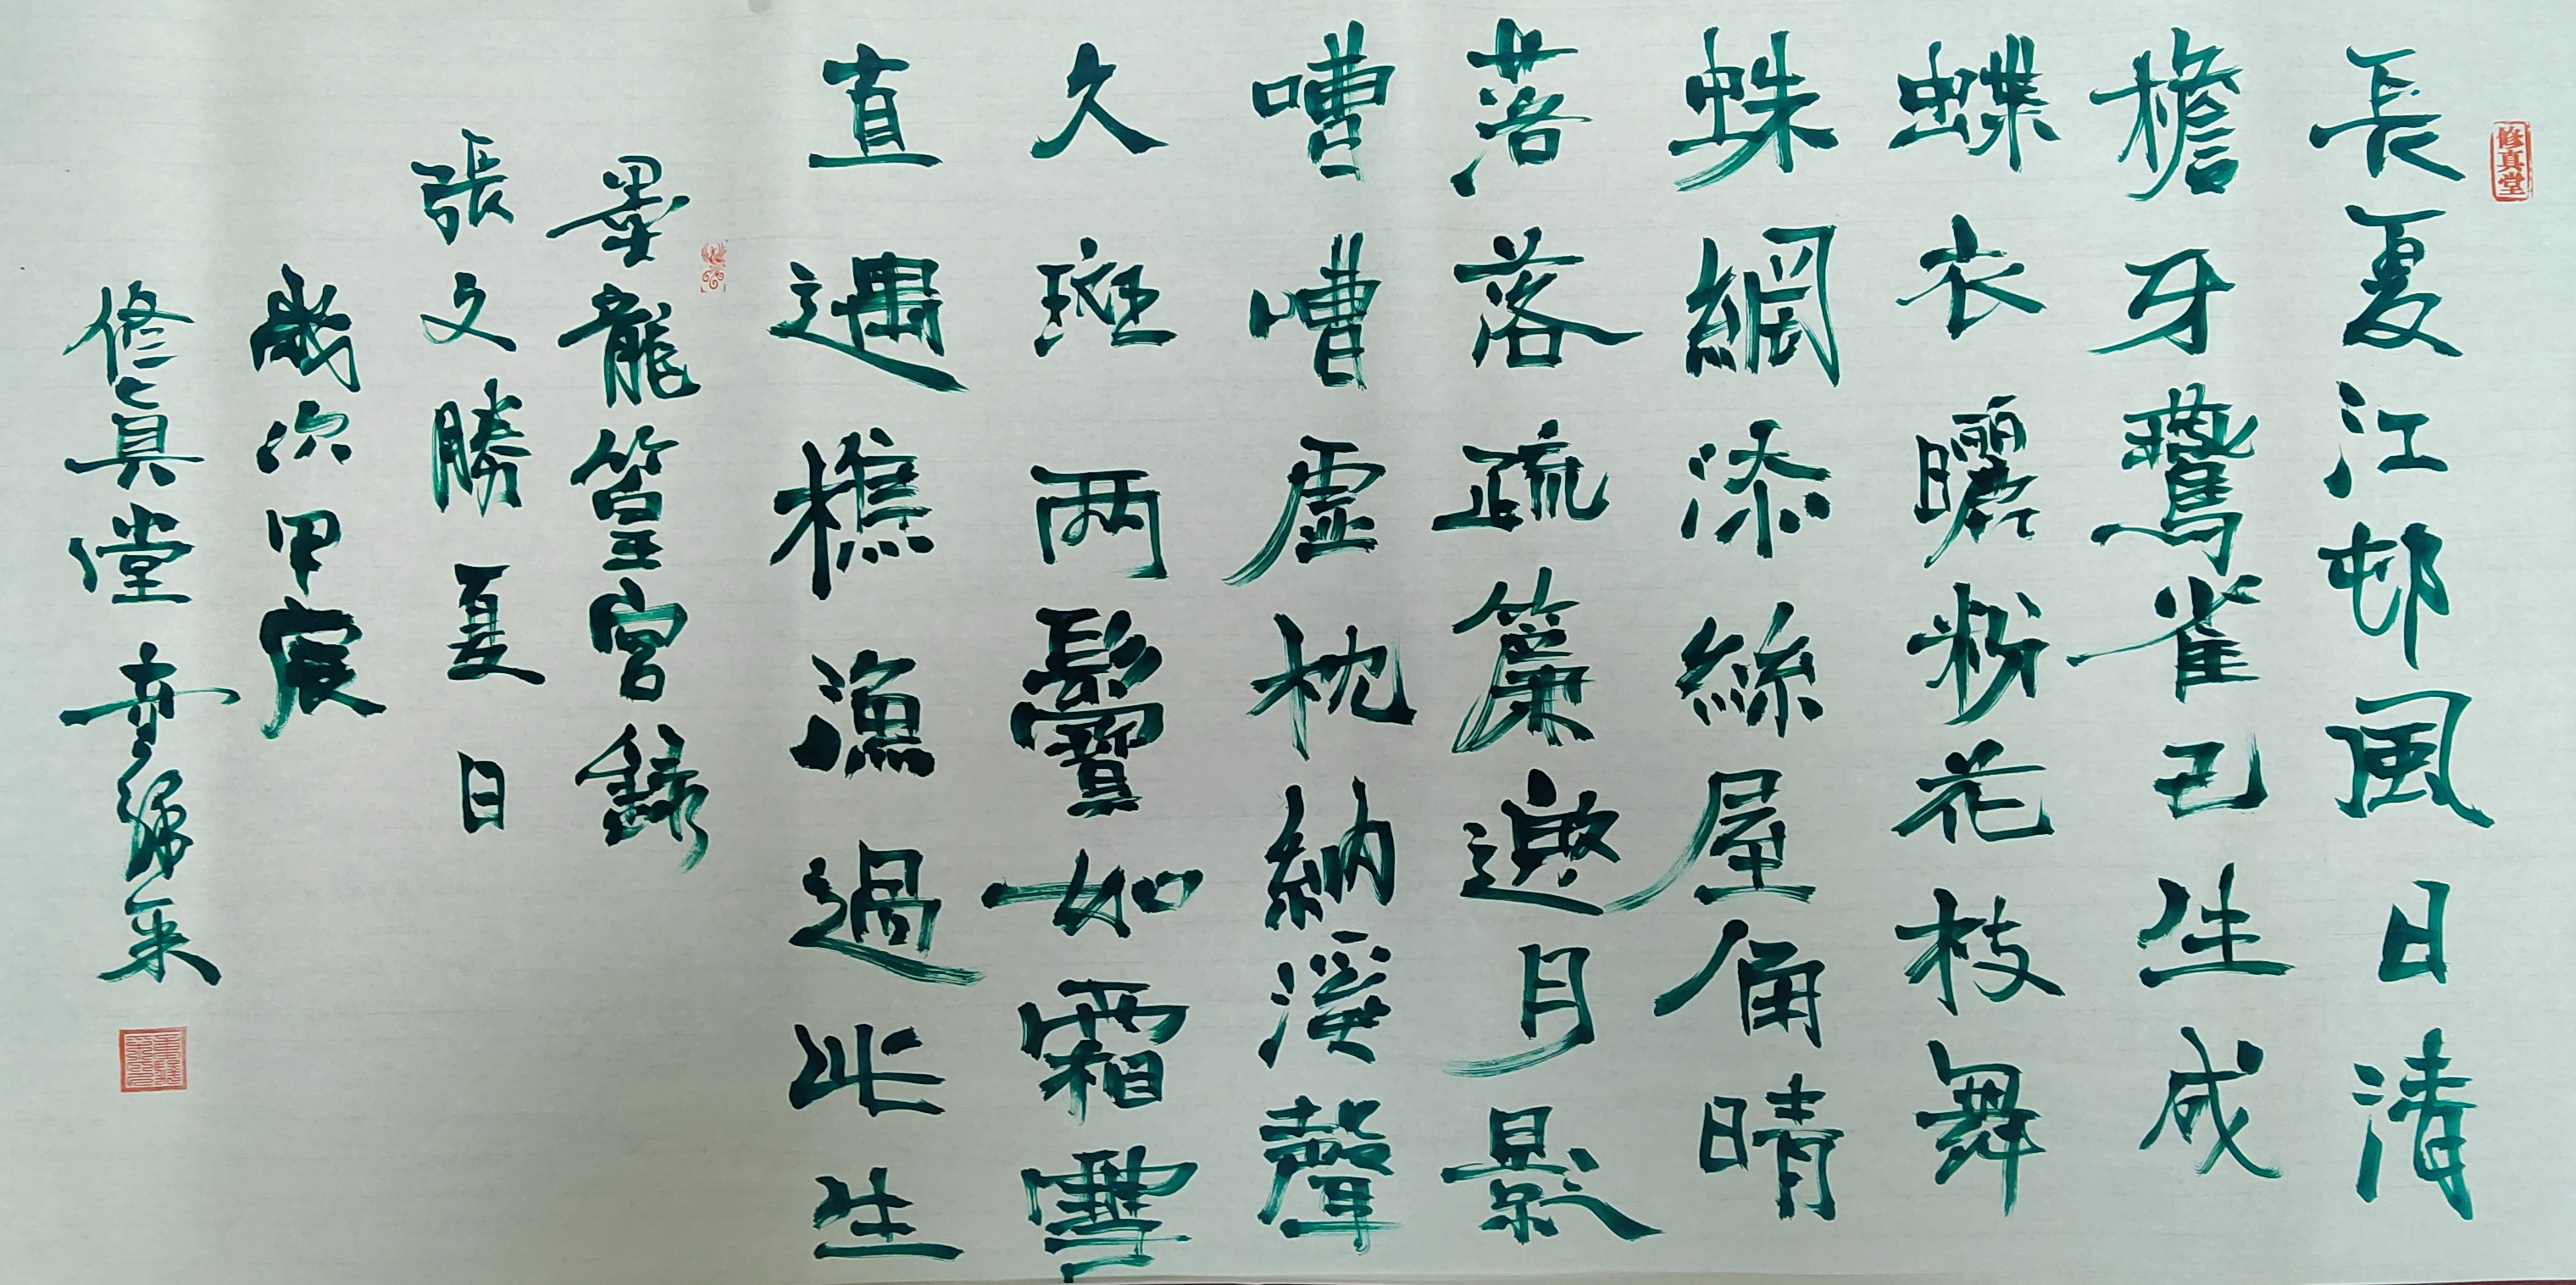 修真堂
長夏江邨風日清
檐牙鷰雀已生成
蝶衣曬粉花枝舞
蛛網添絲屋角晴
落落疏簾邀月影
嘈嘈虛枕納溪聲
久斑两鬢如霜雪
直遇樵漁過此生
墨龍篁宮錄
張文勝夏日
歲次甲辰
修真堂歸来